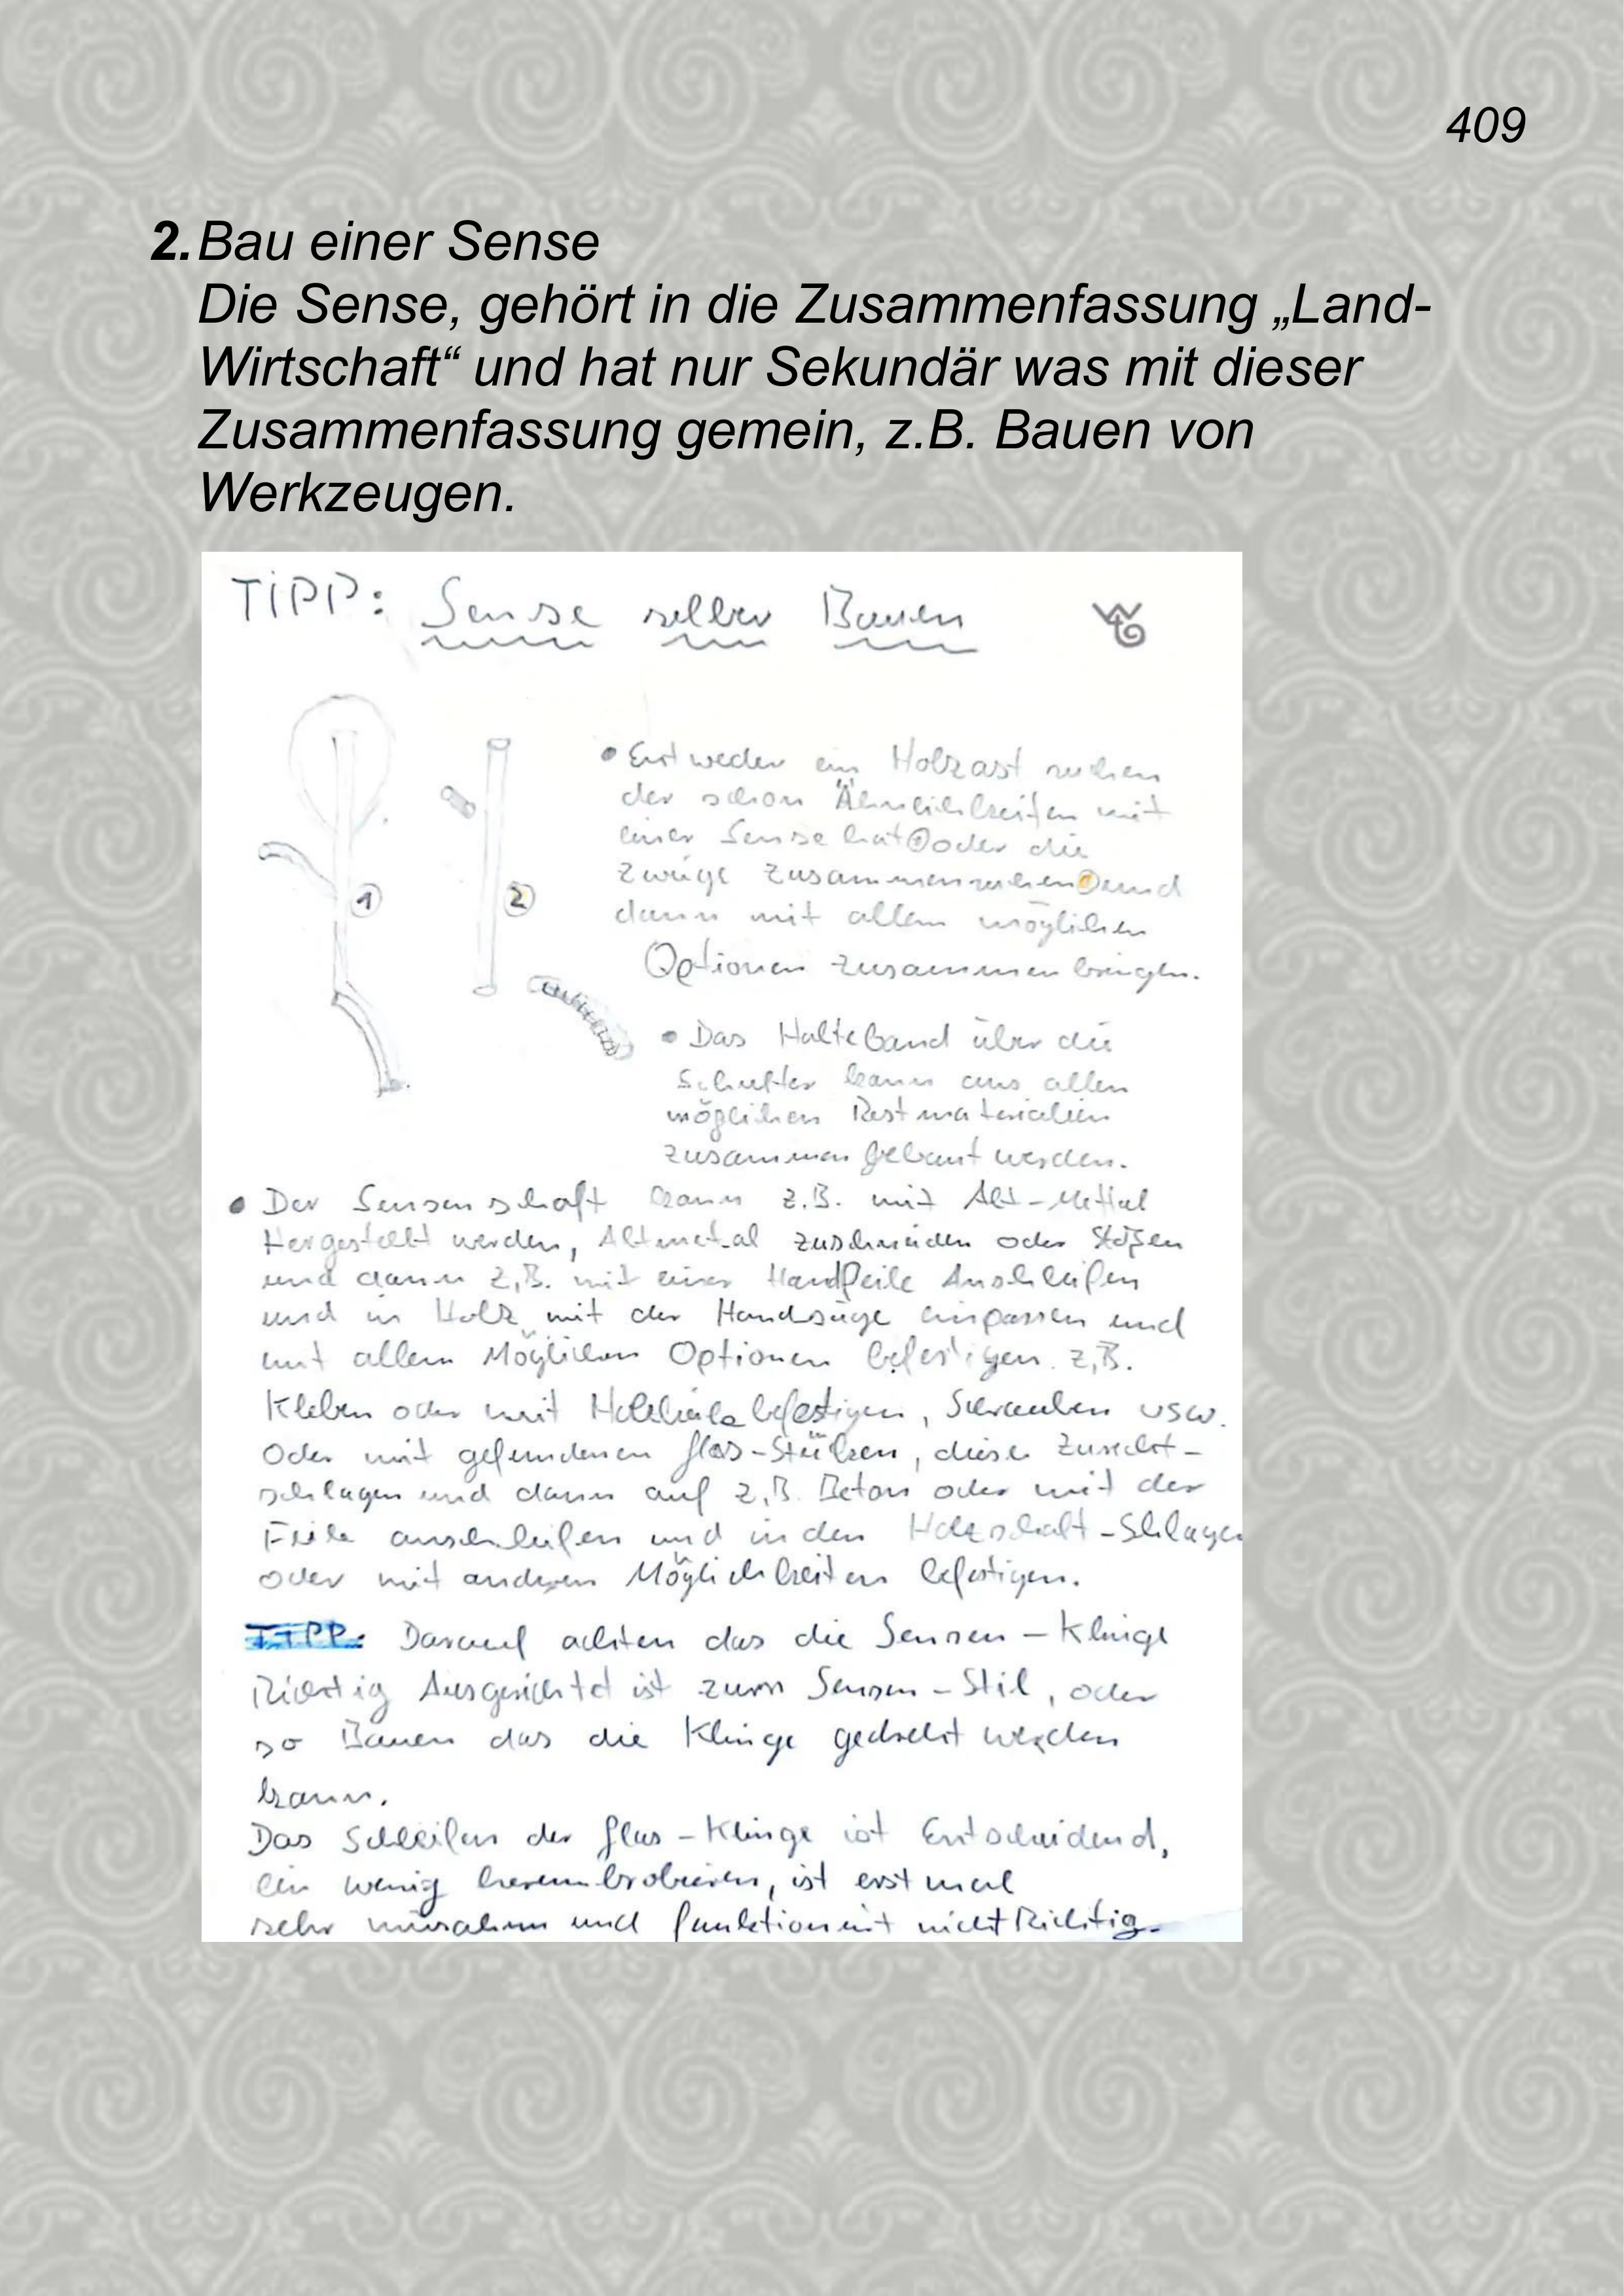 409
2. Bau einer Sense
Die Sense, gehört in die Zusammenfassung „Land-
Wirtschaft“ und hat nur Sekundär was mit dieser
Zusammenfassung gemein, z.B. Bauen von
Werkzeugen.
TIPP: Sense selber Bauen
• Entweder ein Holzast suchen
der schon Ähnlichkeiten mit
einer Sense hat ① oder die
1
2
Zweige zusammensuchen und
dann mit allen möglichen
Optionen zusammen bringen.
• Das Halteband über die
Schulter kann aus allen
möglichen Restmaterialien
zusammen gebaut werden.
• Der Sensenschaft kann z.B. mit Alt-Mettal
Hergestellt werden, Altmetal zuschneiden oder
und dann z.B. mit einer Handfeile Anschleifen
und in Holz mit der Handsäge einpassen und
mit allen Möglichen Optionen befestigen. z.B.
Kleben oder mit befestigen, Schrauben usw.
Oder mit gefundenen Glas-Stücken, diese Zurecht-
schlagen und dann auf z.B. Beton oder mit der
Feile anschleifen und in den Holzschaft-Schlagen
oder mit anderen Möglichkeiten befestigen.
TIPP: Darauf achten das die Sensen-Klinge
Richtig Ausgerichtet ist zum Sensen-Stil, oder
so Bauen das die Klinge gedreht werden
kann.
Das Schleifen der Glas-Klinge ist Entscheidend,
ein wenig ist erst mal
sehr mühsam und funktioniert nicht Richtig.